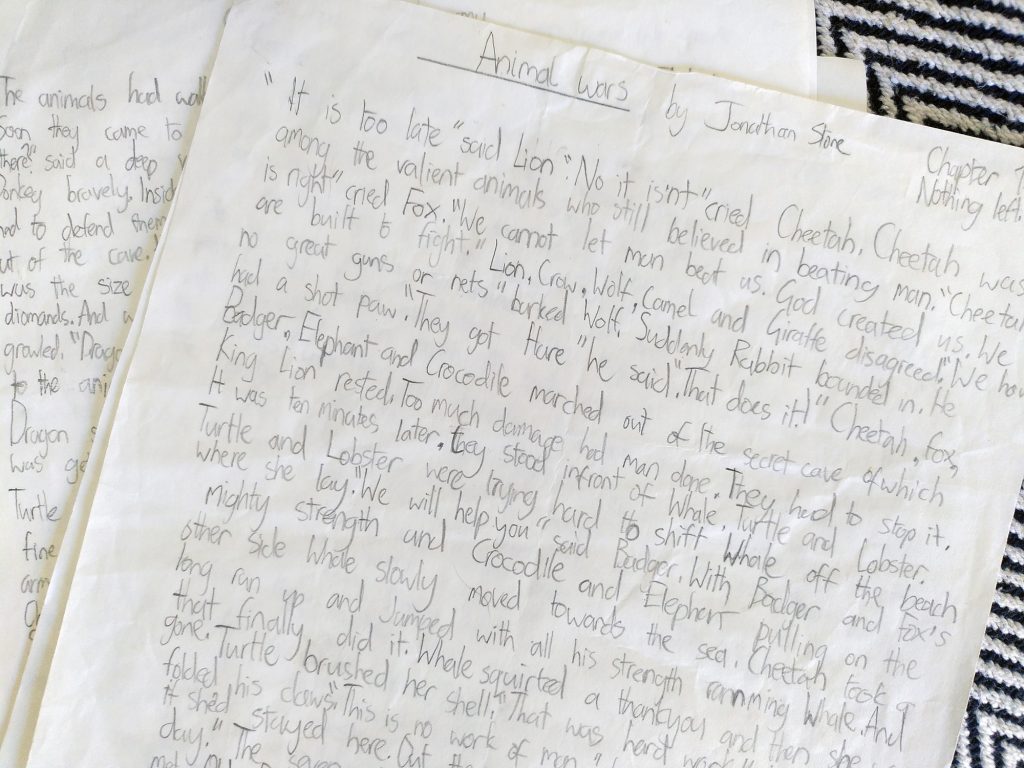 Animal wars by Jonathan Stone
Chapter 1
Nothing left.
"It is too late "said Lion." No it isn't" cried Cheetah. Cheetah was
among the valient animals who still believed in beating man. "Cheetah
is right" cried Fox. "We cannot let man beat us. God created us. We
are built to fight." Lion, Crow, Wolf, Camel and Giraffe disagreed. "We have
no great guns or nets" barked Wolf. Suddenly Rabbit bounded in. He
had a shot paw. "They got Hare "he said". That does it!" Cheetah, Fox,
Badger, Elephant and Crocodile marched out of the secret cave of which
King Lion rested. Too much damage had man done. They had to stop it.
It was ten minates later. they stood infront of Whale, Turtle and Lobster.
Turtle and Lobster were trying hard to shift Whale off the beach
where she lay. "We will help you" said Badger. With Badger and Fox's
mighty strength and Crocodile and Elephant pulling on the
other side Whale slowly moved towards the sea. Cheetah took a
long run up and jumped with all his strength ramming Whale. And
that finally did it. Whale squirted a thankyou and then she was
gone. Turtle brushed her shell. "That was hard work"
folded his claws. "This is no work of man
it she'd stayed here. Out the
day." The seven
The animals had
Soon they came to
there?" said a deep
Donkey bravely. Insid
had to defend them
out of the cave.
was the size
diomands. And
growled. "Drago
to the ani
Dragon
was ge
Turtle
fine
arm